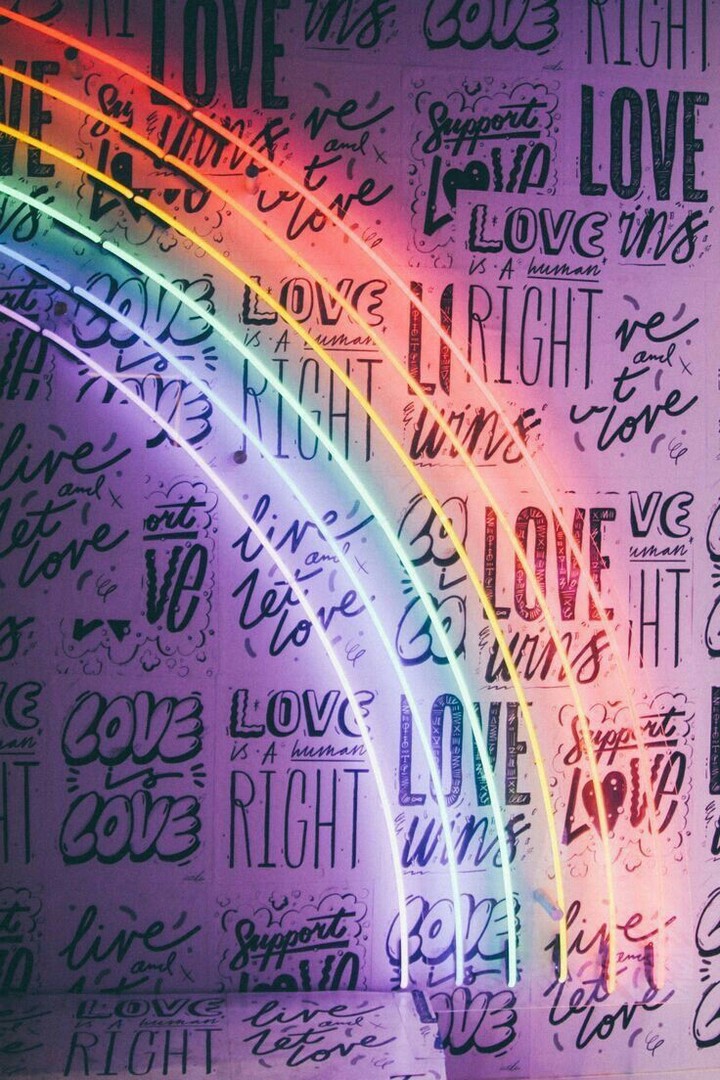 LOVE
ins
LOVE
RIGHT
VE
Su
wins
ve
and
t
love
Support
LOVE
LOVE
LOVE
is A human
RIGHT
ins
LOVE
is
LOVE
LOVE
is A human
RIGHT
wins
ve
and
t
love
live
and
let
love
ort
VE
live
and
let
love
LOVE
wins
VE
uman
HT
LOVE
is
LOVE
LOVE
is A human
RIGHT
LOVE
wins
Support
LOVE
live
and
Support
LOVE
LOVE
is
live
let
love
LOVE
is A human
RIGHT
live
and
let
love